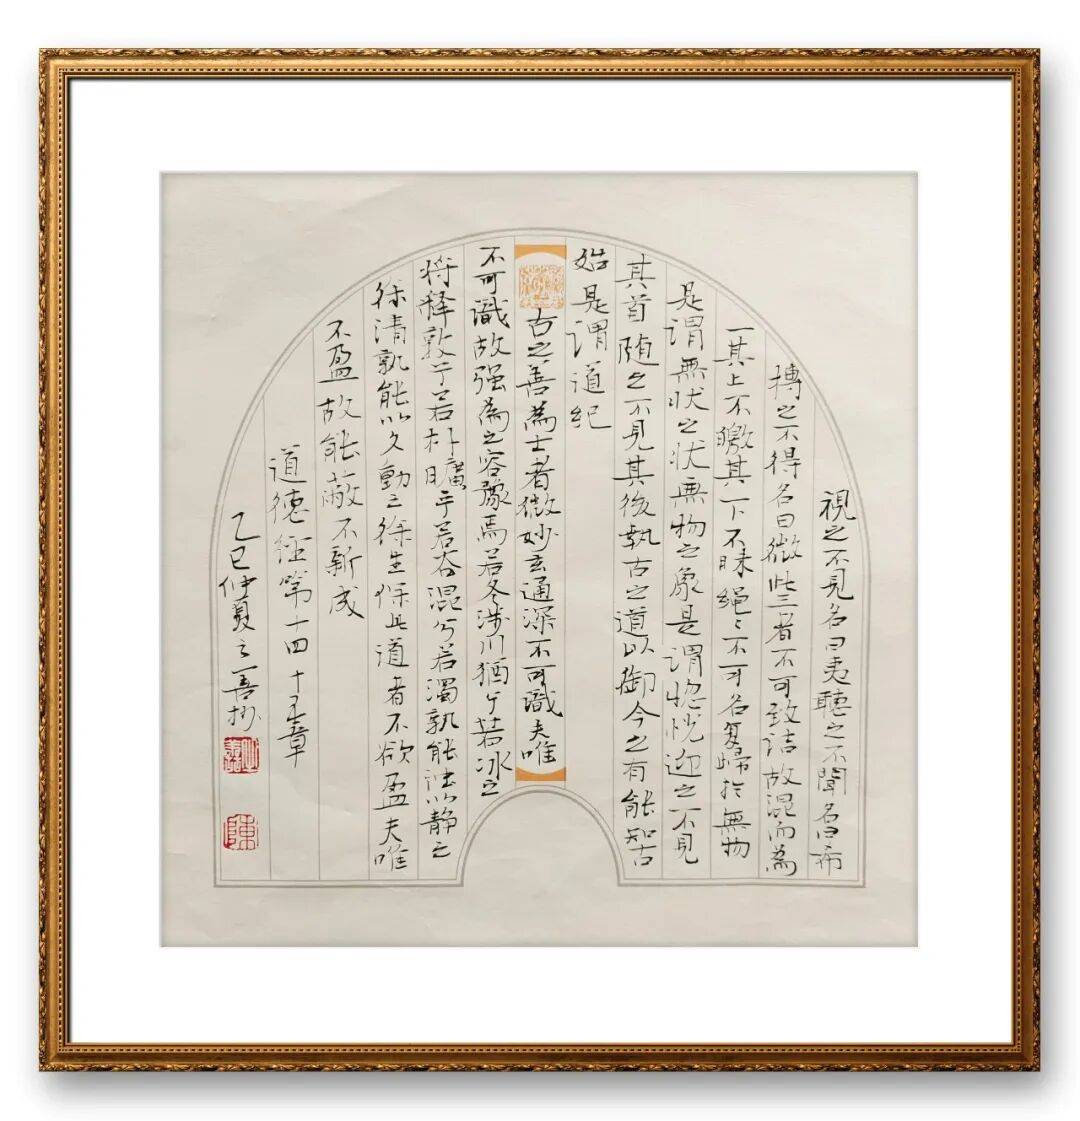 視之不見名曰夷聽之不聞名曰希
搏之不得名曰微此三者不可致詰故混而為
一其上不皦其下不昧繩〻不可名复歸於無物
是謂無狀之狀無物之象是謂惚恍迎之不見
其首随之不見其後執古之道以御今之有能知古
始是谓道纪
古之善為士者微妙玄通深不可識夫唯
不可識故强為之容豫焉若冬涉川猶兮若冰之
将释敦兮若朴曠乎若谷混兮若濁孰能浊以静之
徐清孰能以久動之徐生保此道者不欲盈夫唯
不盈故能蔽不新成
道德经第十四十五章
乙巳仲夏之善抄
陳